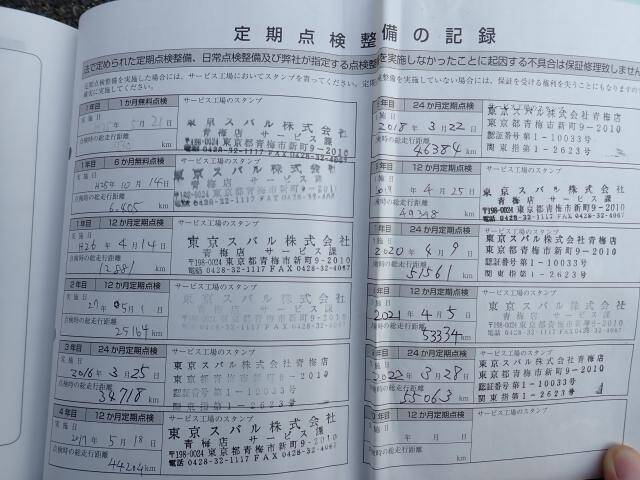 定期点検整備の記録
法で定められた定期点検整備、日常点検整備及び弊社が指定する点検整備を実施しなかったことに起因する不具合は保証修理致しません
定期点検整備を実施した場合には、サービス工場においてスタンプを貰ってください。
確実に実施してください。
1年目 1か月無料点検
サービス工場のスタンプ
5月21日
点検時の総走行距離
km
東京スバル株式会社
青梅店 サービス課
〒198-0024 東京都青梅市新町9-2010
電話 0428-32-1117 FAX 0428-32-4067
1年目 6か月無料点検
サービス工場のスタンプ
実施日
H25年10月14日
点検時の総走行距離
6,405 km
東京スバル株式会社
青梅店 サービス課
〒198-0024 東京都青梅市新町9-2010
電話 0428-32-1117 FAX 0428-32-4067
1年目 12か月定期点検
サービス工場のスタンプ
実施日
H26年4月14日
点検時の総走行距離
12,581 km
東京スバル株式会社
青梅店 サービス課
〒198-0024 東京都青梅市新町9-2010
電話 0428-32-1117 FAX 0428-32-4067
2年目 12か月定期点検
サービス工場のスタンプ
実施日
27年5月1日
点検時の総走行距離
25164 km
東京スバル株式会社
青梅店 サービス課
〒198-0024 東京都青梅市新町9-2010
電話 0428-32-1117 FAX 0428-32-4067
3年目 24か月定期点検
サービス工場のスタンプ
実施日
2016年3月25日
点検時の総走行距離
34718 km
東京スバル株式会社青梅店
東京都青梅市新町9-2010
認証番号第1-10033号
関東指第1-2623号
4年目 12か月定期点検
サービス工場のスタンプ
実施日
2017年5月18日
点検時の総走行距離
44204 km
東京スバル株式会社
青梅店 サービス課
〒198-0024 東京都青梅市新町9-2010
電話 0428-32-1117 FAX 0428-32-4067
年目 24か月定期点検
サービス工場のスタンプ
2018年3月22日
検時の総走行距離
46384 km
東京都青梅市新町9-2010
認証番号第1-10033号
関東指第1-2623号
12か月定期点検
4月25日
49348 km
東京スバル株式会社
青梅店 サービス課
〒198-0024 東京都青梅市新町9-2010
24か月定期点検
サービス工場のスタンプ
2020年4月9日
検時の総走行距離
51561 km
東京スバル株式会社青梅店
東京都青梅市新町9-2010
認証番号第1-10033号
関東指第1-2623号
12か月定期点検
サービス工場のスタンプ
2021年4月5日
検時の総走行距離
53334 km
東京スバル株式会社
青梅店 サービス課
〒198-0024 東京都青梅市新町9-2010
24か月定期点検
サービス工場のスタンプ
2022年3月28日
時の総走行距離
55063 km
東京スバル株式会社青梅店
東京都青梅市新町9-2010
認証番号第1-10033号
関東指第1-2623号
12か月定期点検
サービス工場のスタンプ
年 月 日
時の総走行距離
km